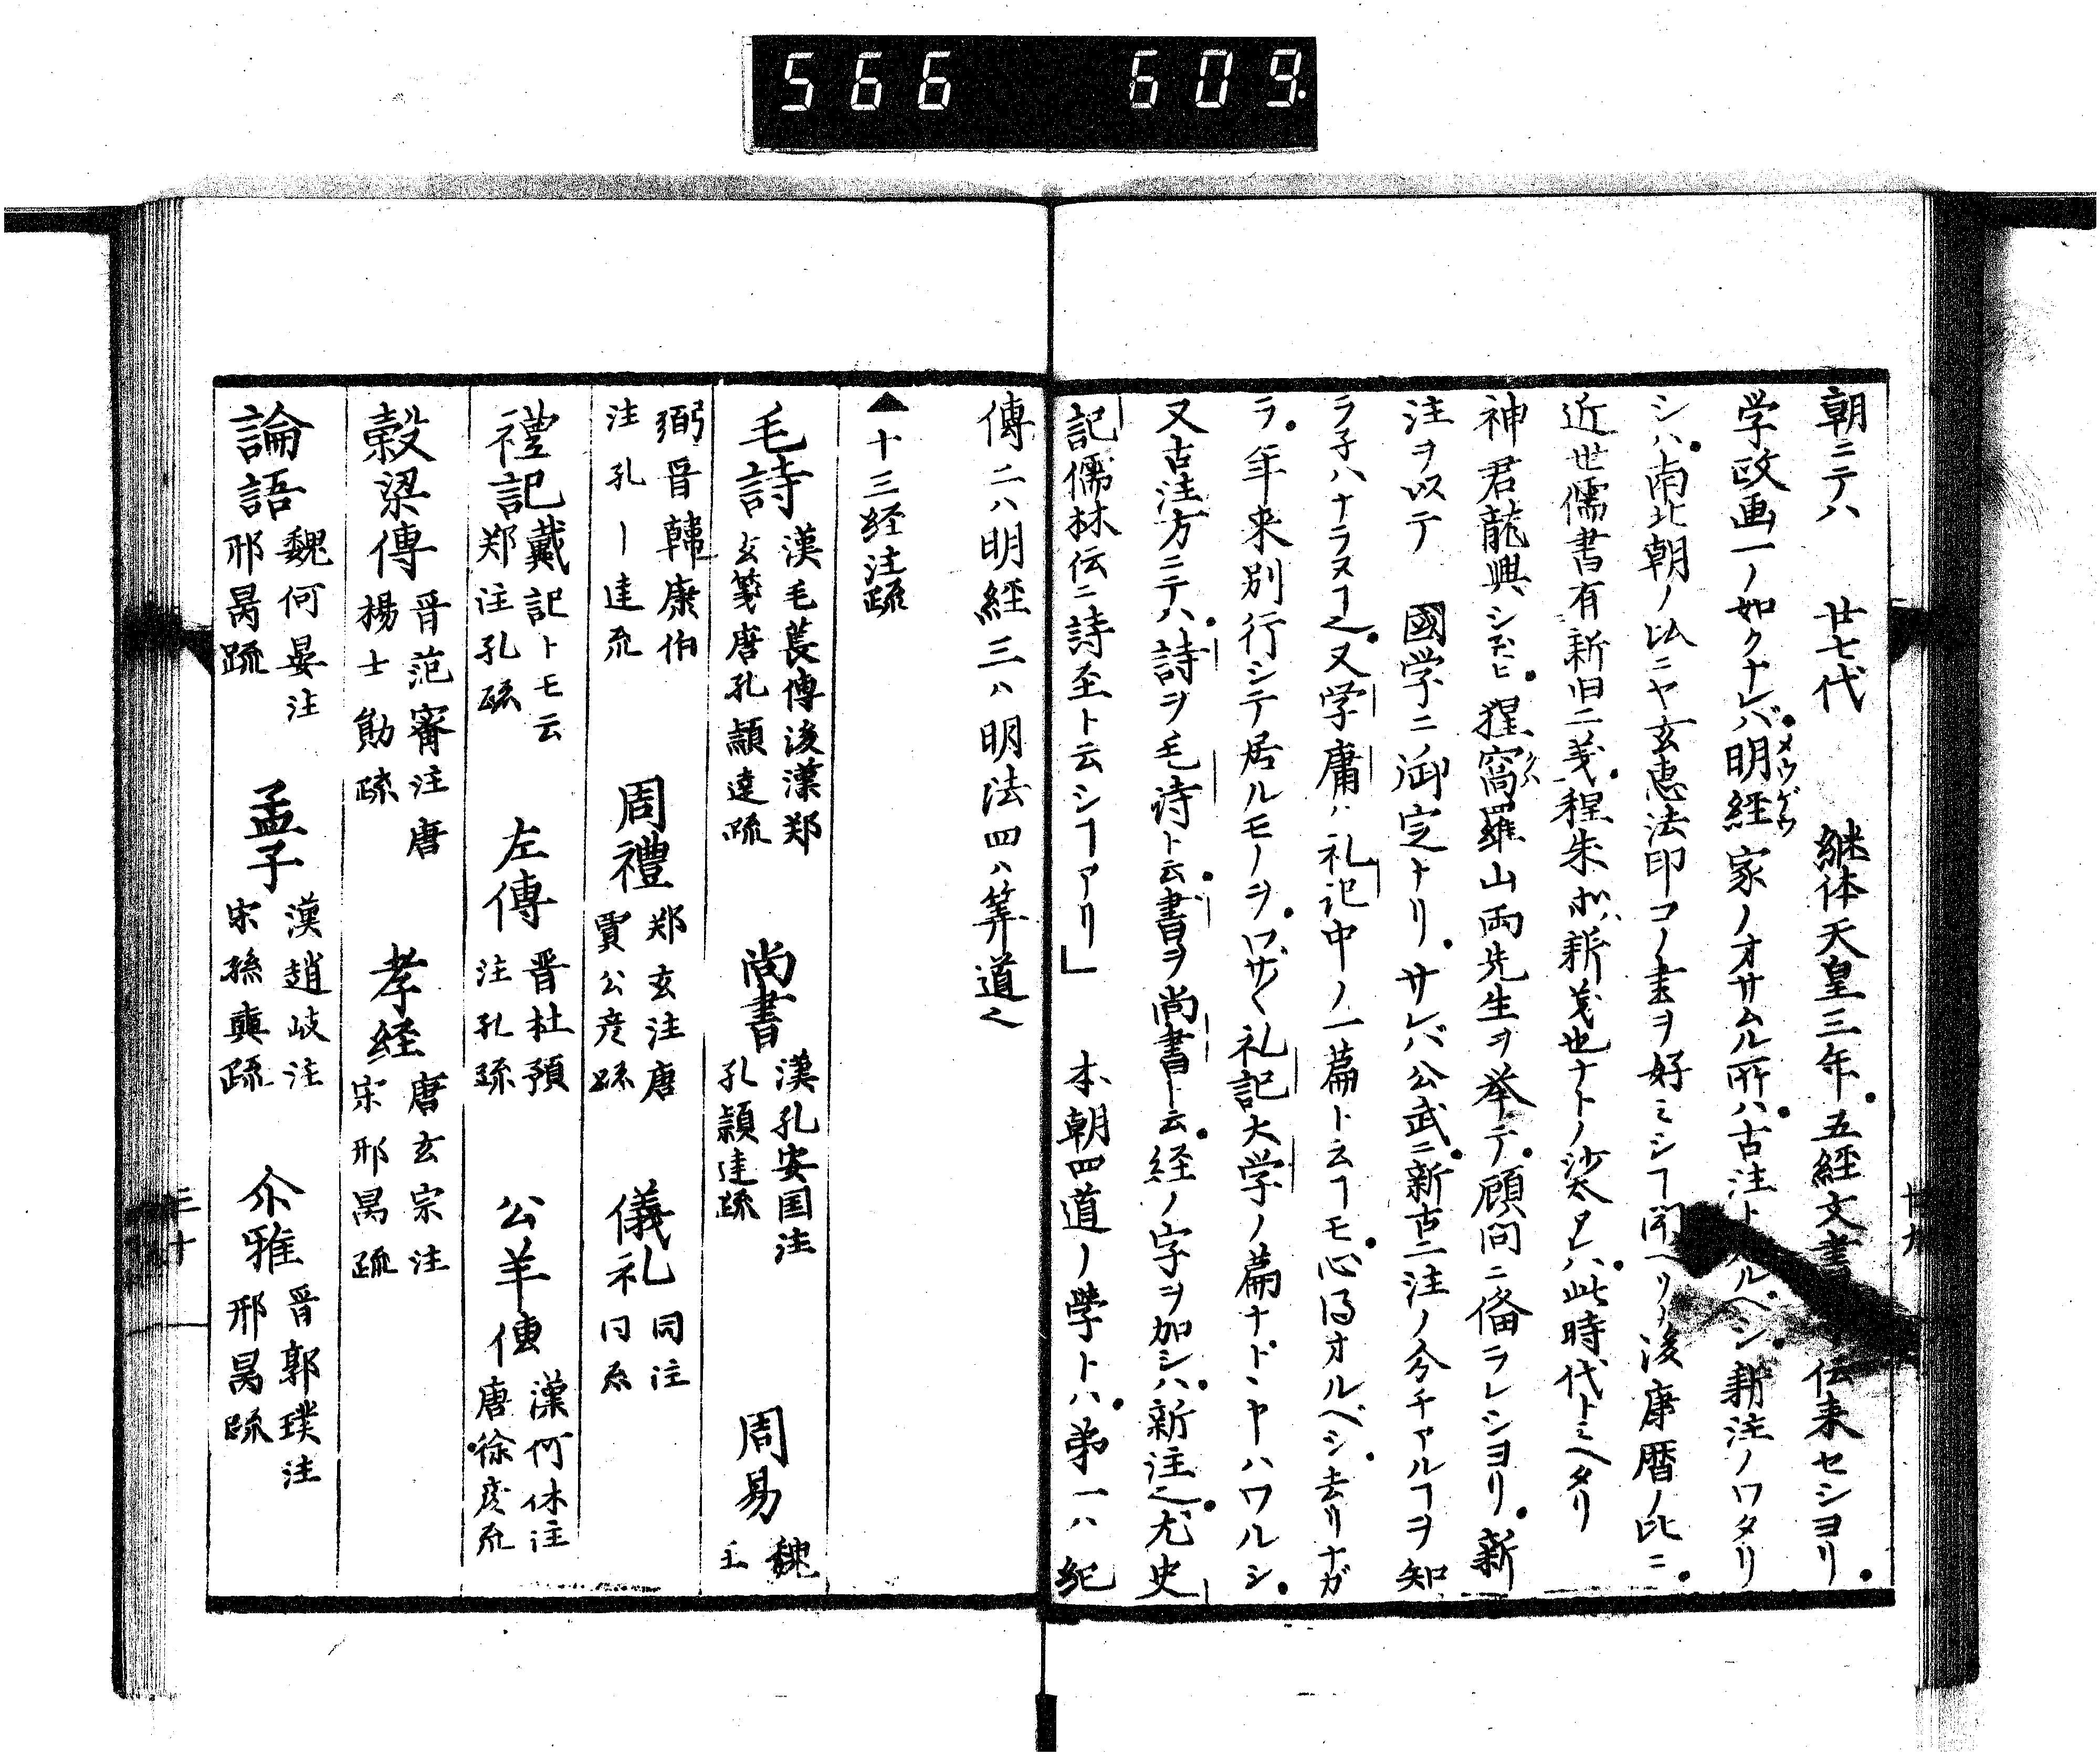 566 609.
朝ニテハ 廿七代 継体天皇三年五経文書 伝来セシヨリ
学政画一ノ如クナレバ明経家ノオサムル所ハ古注ト ルベシ新注ノワタリ
メウゲウ
シハ南北朝ノ比ニヤ玄恵法印コノ書ヲ好ミシヿ聞ヘリ後康暦ノ比ニ
近世儒書有新旧二義程朱 新義也ナトノ沙 此時代トミヘタリ
神君龍興シ玉ヒ惺窩羅山両先生ヲ挙テ顧問ニ備ラレシヨリ新
注ヲ以テ 國学ニ御定ナリサレバ公武ニ新古二注ノ分チアルヿヲ知
ラ子ハナラヌヿ也又学庸ハ礼記中ノ一篇ト云ヿモ心得オルベシ去リナガ
ラ年来別行シテ居ルモノヲワザ〱礼記大学ノ篇ナドヽヤハワルシ
又古注方ニテハ詩ヲ毛詩ト云書ヲ尚書ト云経ノ字ヲ加シハ新注也尤史
記儒林伝ニ詩至ト云シヿアリ」 本朝四道ノ學トハ第一ハ紀
廿九
傳二ハ明経三ハ明法四ハ筭道也
▲十三経注疏
毛詩 漢毛萇傳後漢鄭玄箋唐孔頴達疏 尚書 漢孔安国注孔頴達疏 周易 魏王
弼晋韓康伯注孔ー達疏 周禮 郑玄注唐賈公彦疏 儀礼 同注同疏
禮記 戴記トモ云郑注孔疏 左傳 晋杜預注孔疏 公羊傳 漢何休注唐徐彦疏
穀梁傳 晋范甯注唐楊士勛疏 孝経 唐玄宗注宋邢昺疏
論語 魏何晏注邢昺疏 孟子 漢趙岐注宋孫奭疏 尒雅 晋郭璞注邢昺疏
三十